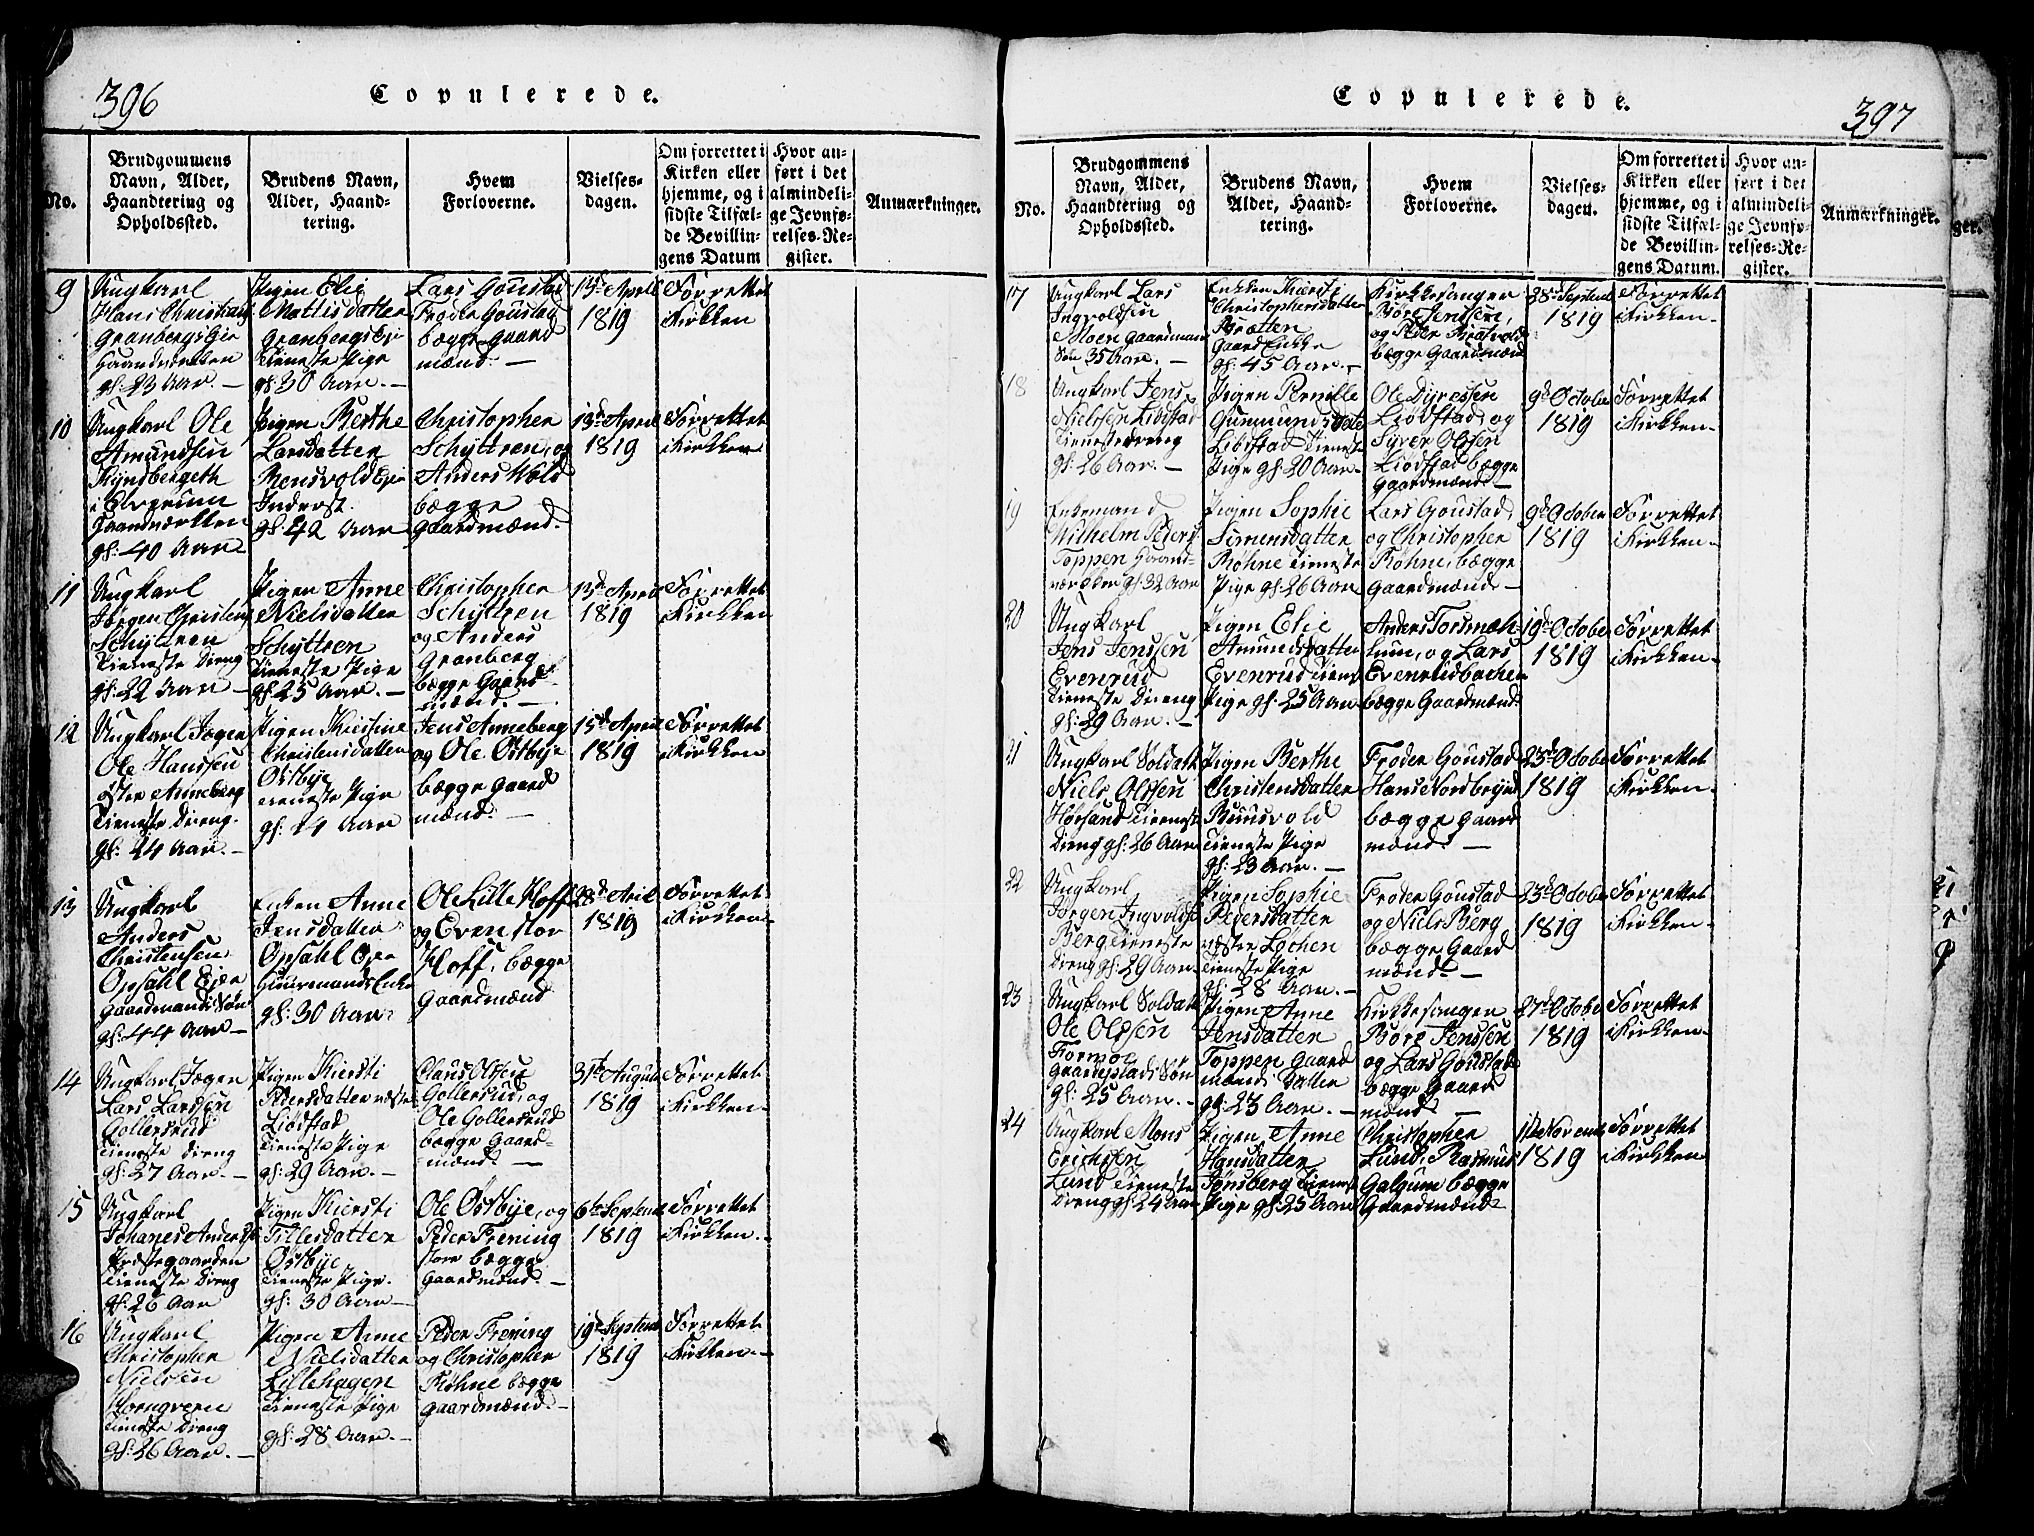 396
Copulerede.
No.
Brudgommens
Navn, Alder,
Haandtering og
Opholdssted.
Brudens Navn,
Alder, Haand-
tering.
Hvem
Forloverne.
Vielses-
dagen.
Om forrettet i
Kirken eller
hjemme, og i
sidste Tilfæl-
de Bevillin-
gens Datum
Hvor an-
ført i det
almindeli-
ge Jevnfø-
relses-Re-
gister.
Anmærkninger.
9
Ungkarl
Hans Christians
Granbergs Eie
Haandverker
gl: 23 Aar. —
Pigen Elie
Mattisdatter
Granbergs Eie
Tieneste Pige
gl: 30 Aar. —
Lars Goustad
Froder Goustad
begge Gaard
mænd. —
13de April
1819
Forrettet
i Kirkken
10
Ungkarl Ole
Amundsen
Kyndbergeth
i Elverum
gl: 40 Aar
Pigen Berthe
Larsdatter
Rensvold Eie
Inderst.
gl: 42 Aar
Christopher
Schyttren, og
Anders Wold
bægge
Gaardmænd.
13de April
1819
Forrettet
i Kirkken
11
Ungkarl
Jørgen Christens
Schyttren
Tieneste Dreng
gl: 22 Aar —
Pigen Anne
Nielsdatter
Schyttren
Tieneste Pige
gl: 25 Aar. —
Christopher
Schyttren
og Anders
Granberg
bægge Gaard
mænd. —
13de April
1819
Forrettet
i Kirkken
12
Ungkarl Jæger
Ole Hanssen
øster Anneberg
Tieneste Dreng.
gl: 24 Aar. —
Pigen Kirstine
Christensdatter
Østbye
Tieneste Pige
gl: 24 Aar
Jens Anneberg
og Ole Østbye
bægge Gaard
mænd. —
15de April
1819
Forrettet
i Kirkken
13
Ungkarl
Anders
Christensen
Opsahl Eier
Gaardmands Søn
gl: 44 Aar —
Enken Anne
Jensdatter
Opsahl Eie
Huusmands Enke
gl: 30 Aar
Ole Lille Hoff
og Even stor
Hoff, bægge
Gaardmænd
28de Aril
1819
Forrettet
i Kirkken
14
Ungkarl Jæger
Lars Larssen
Gollersrud
Tieneste Dreng
gl: 27 Aar. —
Pigen Kiersti
Pedersdatter næste
Liødstad
Tieneste Pige
gl: 29 Aar. —
Claus Olsen
Gollersrud, og
Ole Gollersrud
bægge Gaard-
mænd. —
31te August
1819
Forrettet
i Kirkken
15
Ungkarl
Johanes Anders
Præstegaarden
Tieneste Dreng
gl: 26 Aar
Pigen Kiersti
Tillesdatter
Østbye
Tieneste Pige.
gl: 30 Aar —
Ole Østbye, og
Peder Frening
store bægge
Gaardmænd. —
6te Septemb
1819
Forrettet
i Kirkken.
16
Ungkarl
Christopher
Nielsen
Tieneste Dreng
gl: 26 Aar. —
Pigen Anne
Nielsdatter
Lillehagen
Tieneste Pige
gl: 28 Aar. —
Peder Frening
og Christopher
Røhne bægge
Gaardmænd. —
19de Septemb
1819
Forrettet
i Kirkken. —
Copulerede.
397
No.
Brudgommens
Navn, Alder,
Haandtering og
Opholdssted.
Brudens Navn,
Alder, Haand-
tering.
Hvem
Forloverne.
Vielses-
dagen.
Om forrettet i
Kirken eller
hjemme, og i
sidste Tilfæl-
de Bevillin-
gens Datum.
Hvor an-
ført i det
almindeli-
ge Jevnfø-
relses-Re-
gister.
Anmærkninger.
17
Ungkarl Lars
Ingvoldsen
Moen Gaardmans
Søn 35 Aar. —
Enken Kiersti
Christophersdatter
Bratten
Gaard Enke
gl: 45 Aar. —
Kirkesanger
Børe Jenssen,
og Peder
bægge Gaardmænd
28de Septemb
1819
Forrettet
i Kirkken. —
18
Ungkarl Jens
Nielssen Liøstad
Tieneste Dreng
gl: 26 Aar. —
Pigen Pernille
Gunmundsdatter
Liødstad Tieneste
Pige gl: 20 Aar. —
Ole Dyressen
Liødstad, og
Syver Olssen
Liødstad bægge
Gaardmænd —
9de October
1819
Forrettet
i Kirkken. —
19
Enkemand
Wilhelm Peders
Toppen Haand-
værcker gl: 32 Aar
Pigen Sophie
Simensdatter
Røhne Tieneste
Pige gl: 26 Aar
Lars Goustad,
og Christopher
Røhne, bægge
Gaardmænd —
9de October
1819
Forrettet
i Kirkken. —
20
Ungkarl
Jens Jenssen
Evenrud
Tieneste Dreng
gl: 29 Aar. —
Pigen Elie
Amundsdatter
Evenrud Tieneste
Pige gl: 25 Aar
Anders Torsmæh-
lum, og Lars
Evenrudbachen
bægge Gaardmænd
19de October
1819
Forrettet
i Kirkken. —
21
Ungkarl Soldath
Niels Olssen
Horsand Tieneste
Dreng gl: 26 Aar
Pigen Berthe
Christensdatter
Ruusvold
Tieneste Pige
gl: 23 Aar. —
Froder Goustad
Hans Nordbrynd
bægge Gaard
mænd —
23de October
1819
Forrettet
i Kirkken. —
22
Ungkarl
Jørgen Ingvolds
Berg Tieneste
Dreng gl: 29 Aar
Pigen Sophie
Pedersdatter
væster Løchen
Tieneste Pige
gl: 28 Aar. —
Froder Goustad
og Niels Berg
bægge Gaard
mænd —
23de October
1819
Forrettet
i Kirkken. —
23
Ungkarl Soldat
Ole Olssen
Formoe
Gaardmands Søn
gl: 25 Aar. —
Pigen Anne
Jensdatter
Toppen Gaard
mands datter
gl: 23 Aar. —
Kirkkesanger
Børe Jenssen
og Lars Goustad
bægge Gaard
mænd —
27de October
1819
Forrettet
i Kirkken. —
24
Ungkarl Mons
Erichsen
Lund Tieneste
Dreng gl: 24 Aar
Pigen Anne
Hansdatter
Tønsberg Tieneste
Pige gl: 25 Aar
Christopher
Lund, Rasmus
Galgum bægge
Gaardmænd
11te Novemb
1819
Forrettet
i Kirkken